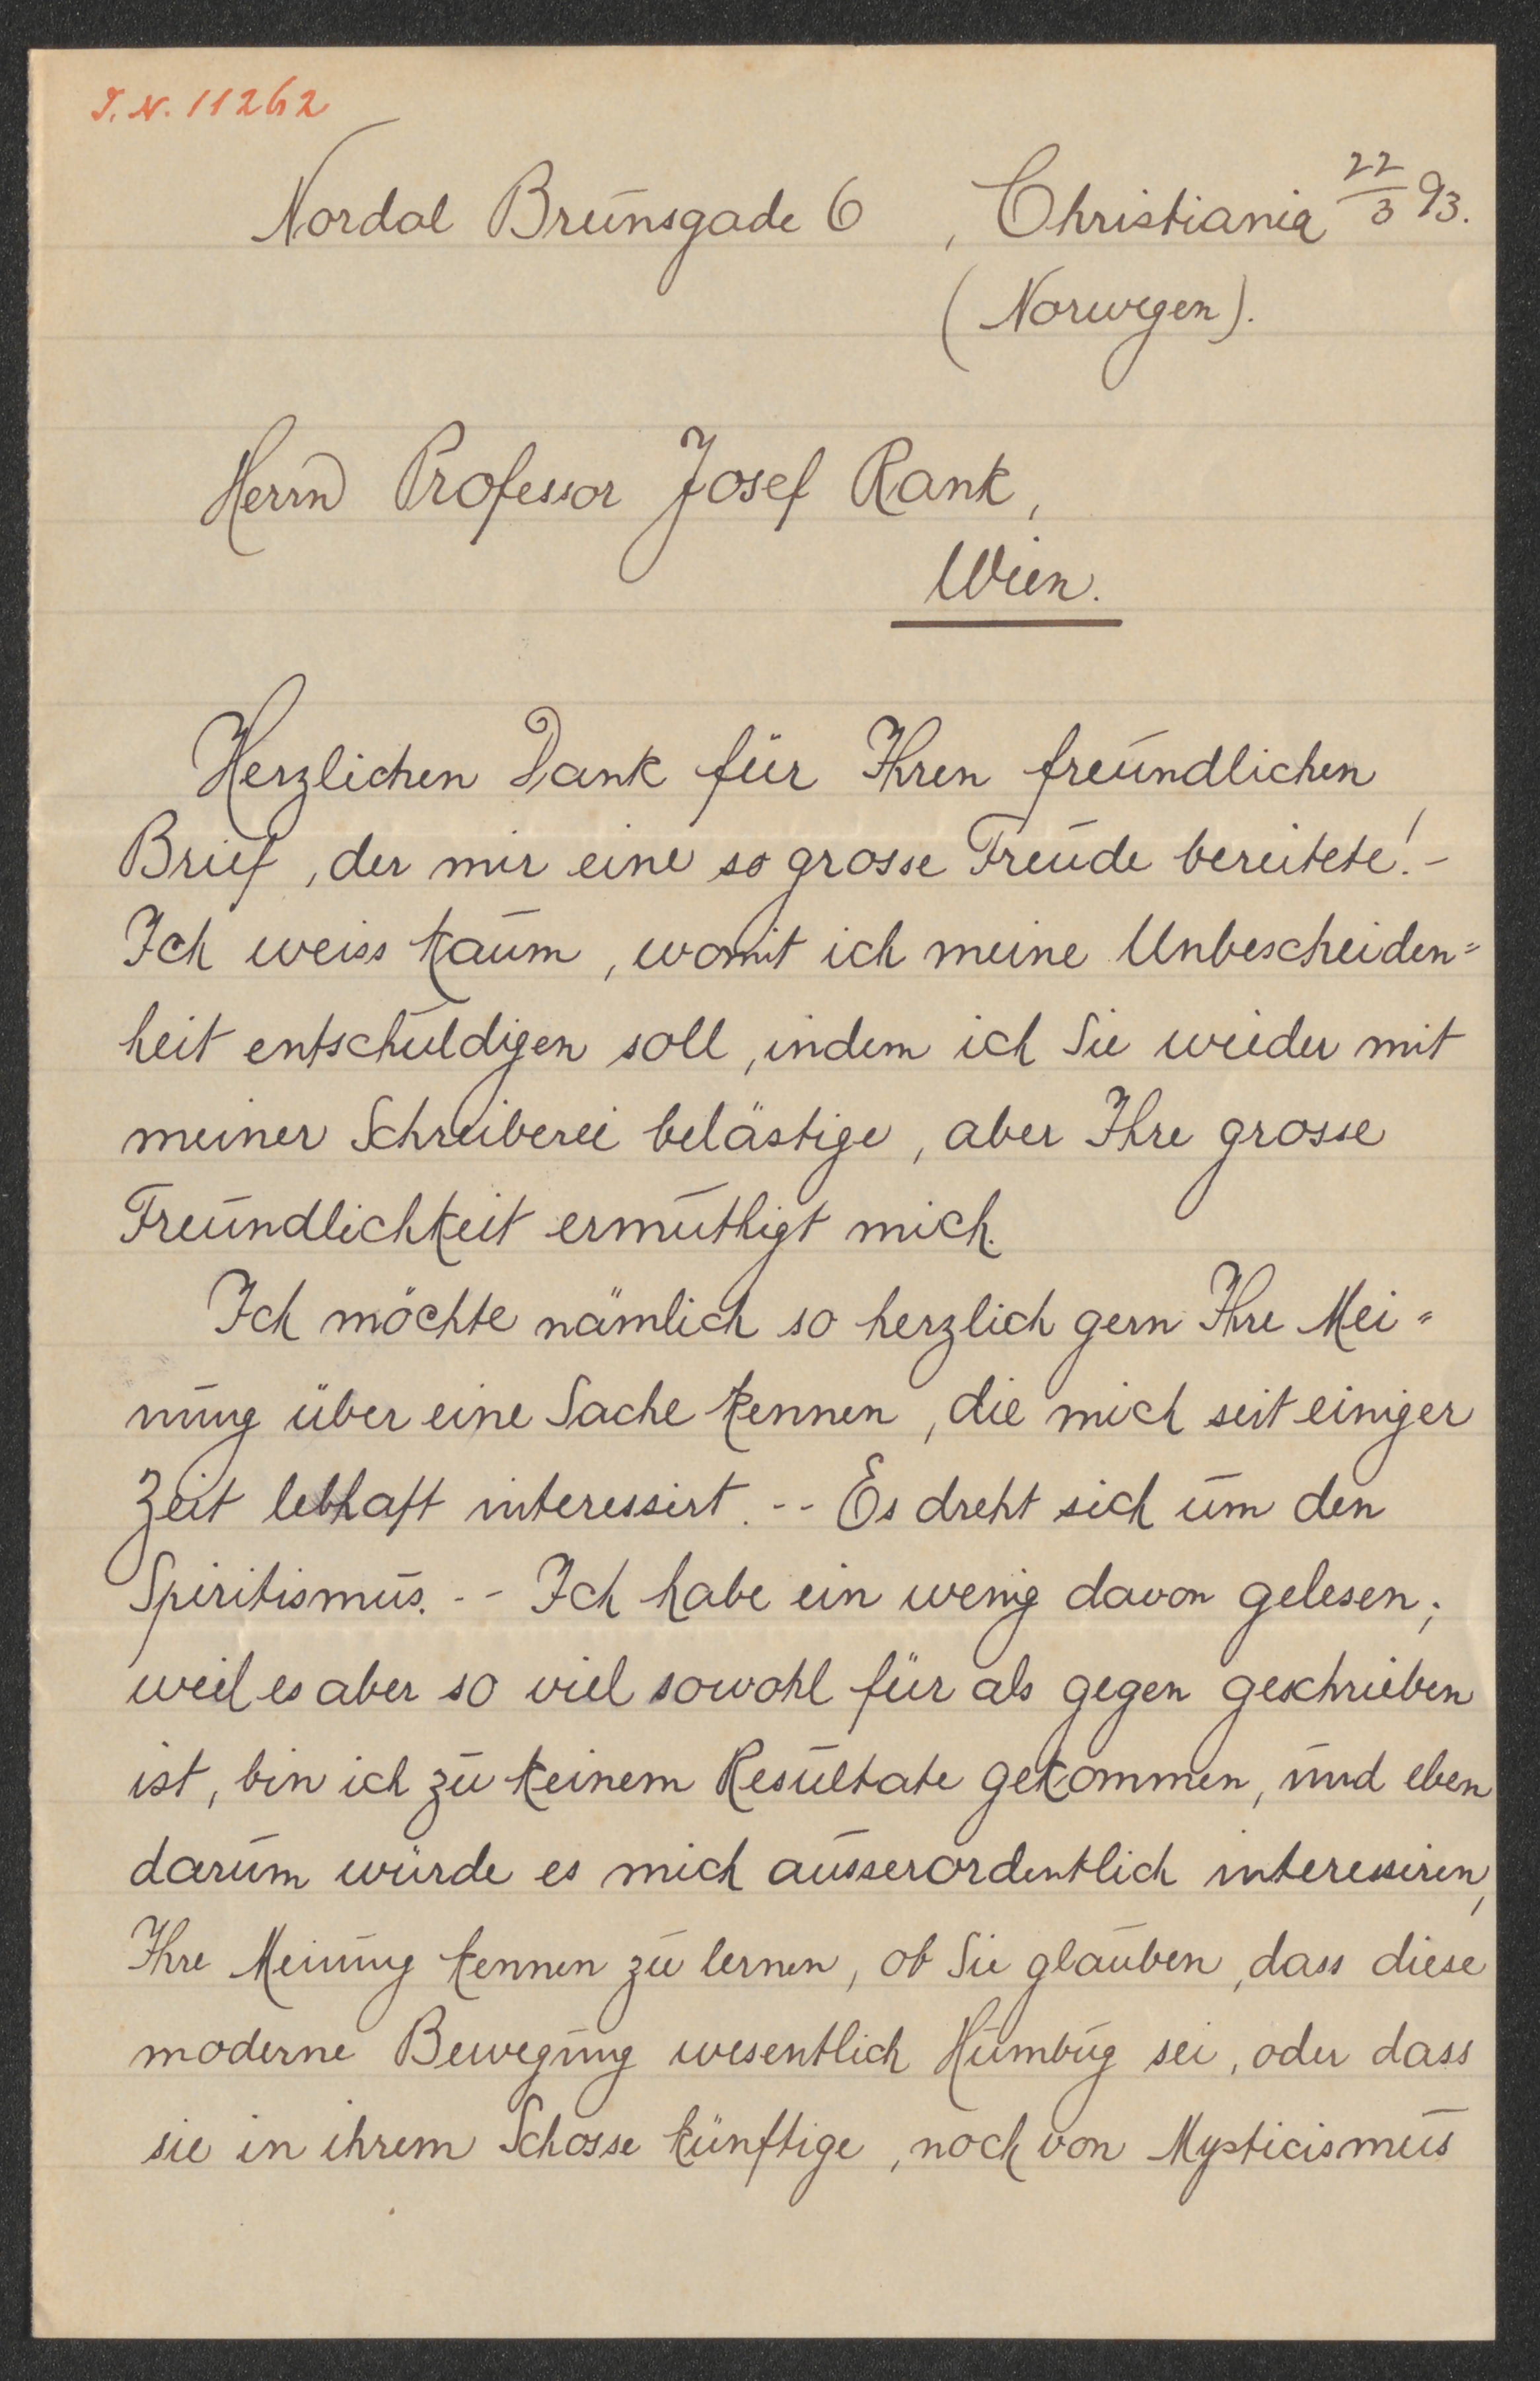 I. N. 11262
Nordal Brunsgade 6, Christiania 22/3 93.
(Norwegen).
Herrn Professor Josef Rank,
Wien.
Herzlichen Dank für Ihren freundlichen
Brief, der mir eine so grosse Freude bereitete! -
Ich weiss kaum, womit ich meine Unbescheiden=
heit entschuldigen soll, indem ich Sie wieder mit
meiner Schreiberei belästige, aber Ihre grosse
Freundlichkeit ermuthigt mich.
Ich möchte nämlich so herzlich gern Ihre Mei=
nung über eine Sache kennen, die mich seit einiger
Zeit lebhaft interessirt. -- Es dreht sich um den
Spiritismus. -- Ich habe ein wenig davon gelesen;
weil es aber so viel sowohl für als gegen geschrieben
ist, bin ich zu keinem Resultate gekommen, und eben
darum würde es mich ausserordentlich interessiren,
Ihre Meinung kennen zu lernen, ob Sie glauben, dass diese
moderne Bewegung wesentlich Humbug sei, oder dass
sie in ihrem Schosse künftige, noch von Mysticismus